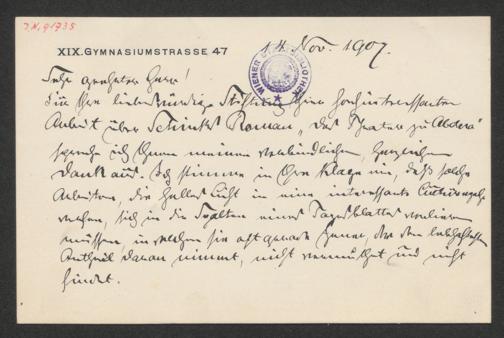 J.N. 91735
XIX. GYMNASIUMSTRASSE 47
14. Nov. 1907.
WIENER BIBLIOTHEK
Sehr geehrter Herr!
Für Ihre liebenswürdige Ihrer hochinteressanten
Arbeit über Roman „Das Theater zu Abdera"
spreche ich Ihnen meinen verbindlichen, herzlichen
Dank aus. Ich stimme in Ihre Klage ein, daß solche
Arbeiten, die helles Licht in eine interessante
werfen, sich in die Spalten eines Tagesblattes verlieren
müssen, in welchen sie oft gerade jener, der den lebhaftesten
Antheil daran nimmt, nicht vermuthet und nicht
findet.